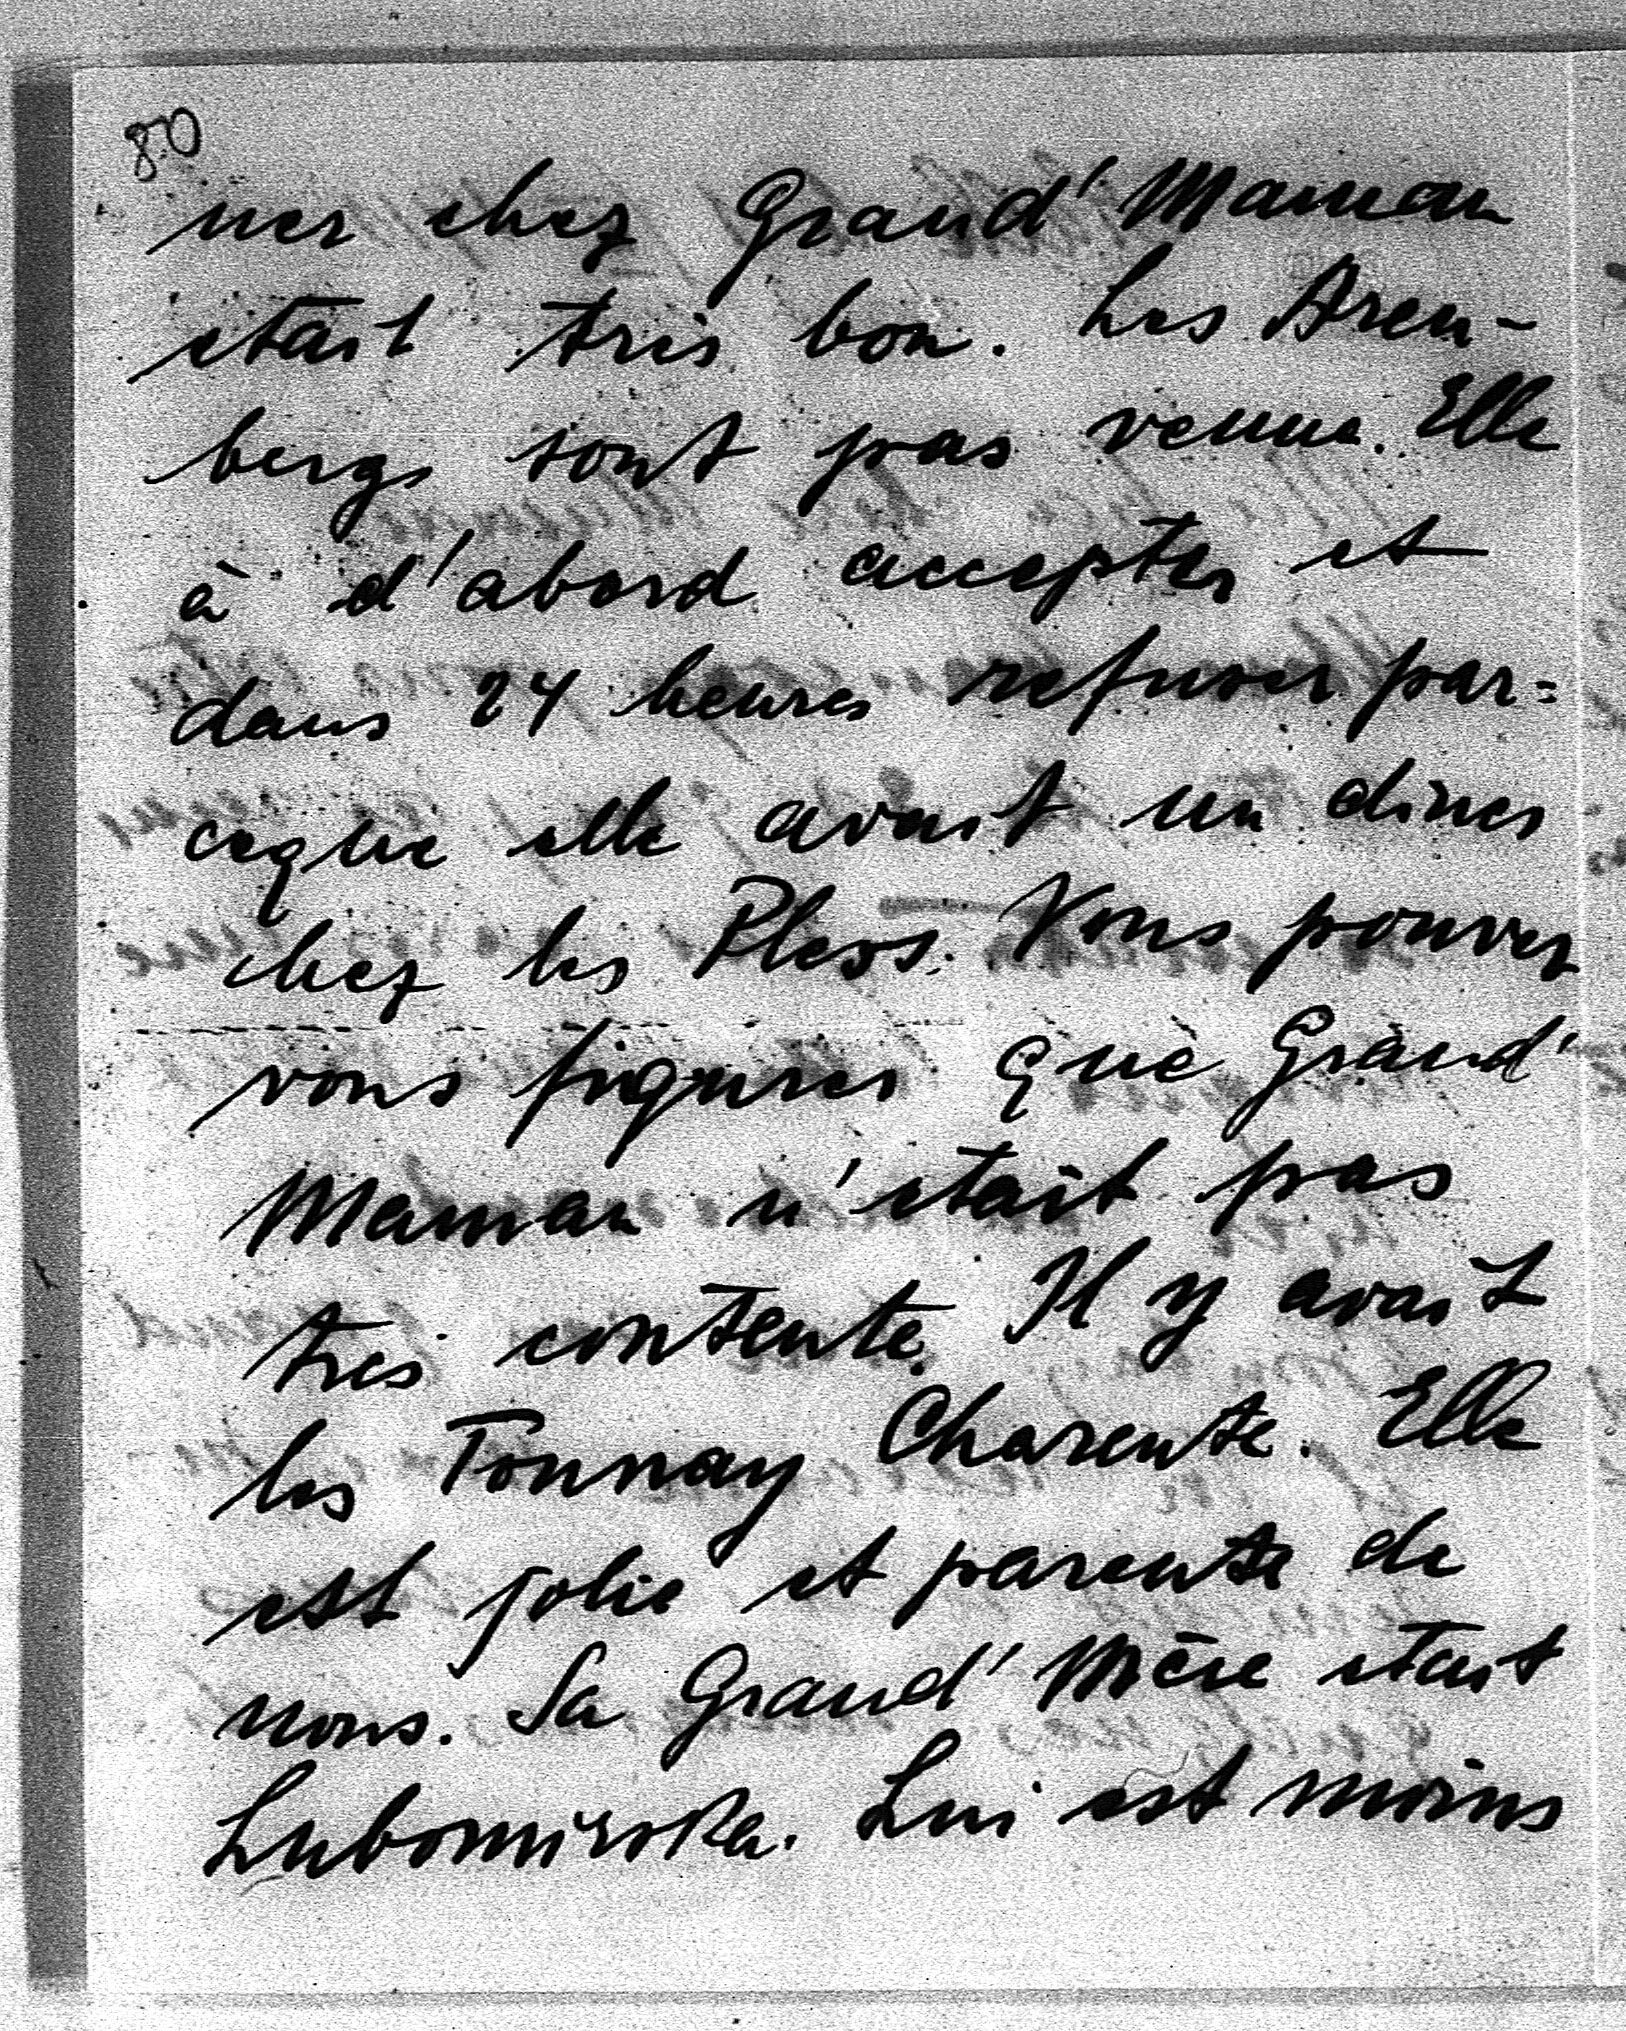 80
ner chez Grand' Maman
etait tris bon. Les Aren-
bergs sont pas venue. Elle
à d'abord accepter et
dans 24 heures refuser par=
ceque elle avait un diner
chez les Pless. Vous pouvez
vous figurer que Grand'
Maman n'etait pas
tres contente. Il y avait
les Tonnay Charente. Elle
est jolie et parente de
nous. Sa Grand' Mère etait
Lubomirska. Lui est moins